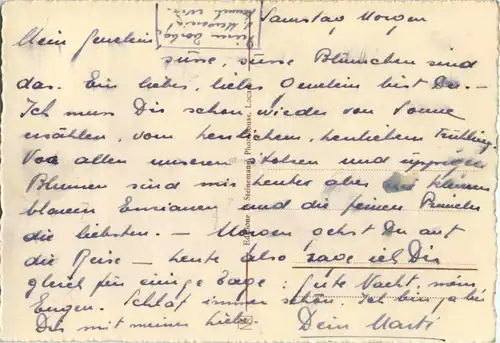 Samstag Morgen
Mein
süsse, süsse Blümchen sind
das. Ein liebes, liebes bist Du. –
Ich muss Dir schon wieder von Sonne
erzählen, vom herrlichen, herrlichen Frühling.
Von allen unseren stolzen und üppigen
Blumen sind mir heute aber die kleinen
blauen Enziane und die feinen Primeln
die liebsten. – Morgen gehst Du auf
die Reise – heute also sage ich Dir
gleich für einige Tage: Gute Nacht, mein
Schlaf immer schön. Ich bin ja bei
Dir mit meiner Liebe.
Dein
Edizione Steinemann, Photohouse, Loc